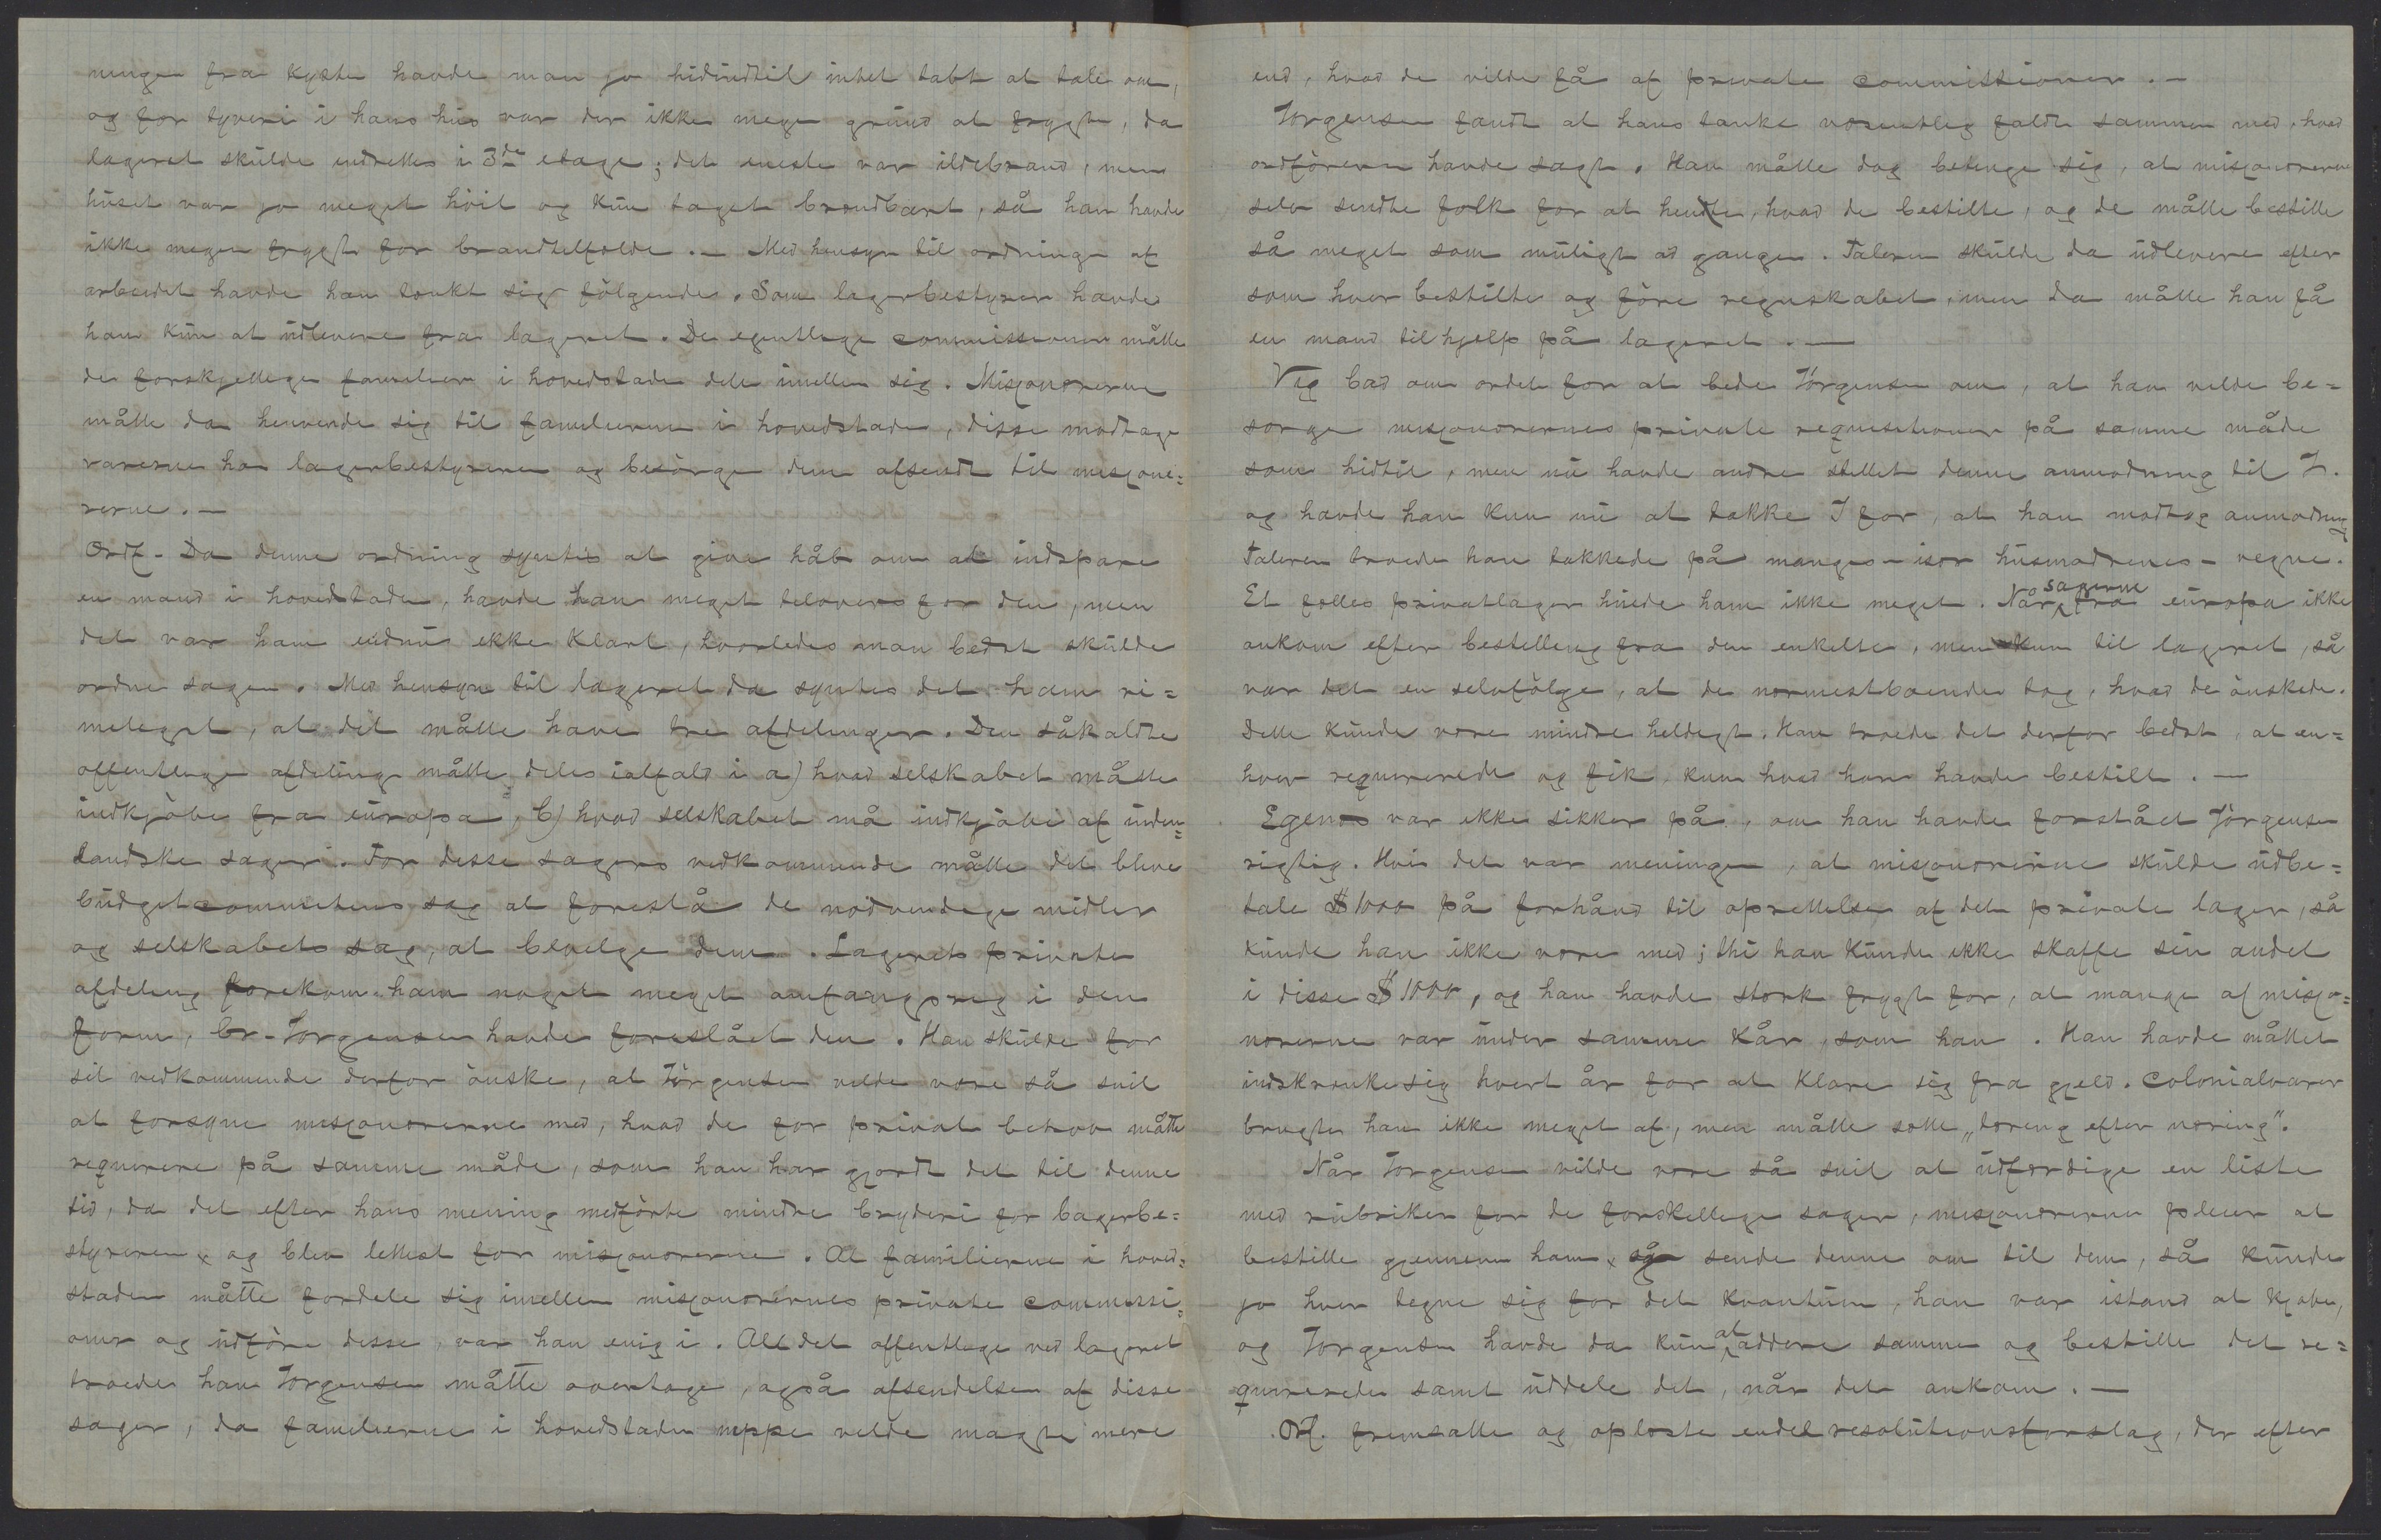 ningen fra kysten havde man jo hidindtil intet tabt at tale om,
og for tyveri i hans hus var der ikke megen grund at frygte, da
lageret skulde indrettes i 3de etage; det eneste var ildebrand, men
huset var jo meget höit og kun taget brændbart, så han havde
ikke megen frygt for brandtilfælde. — Med hensyn til ordningen af
arbeidet havde han tænkt sig fölgende. Som lagerbestyrer havde
han kun at udlevere fra lageret. De egentlige commissioner måtte
de forskjellige familier i hovedstaden dele imellem sig. Misjonærerne
måtte da henvende sig til familierne i hovedstaden, disse modtage
varerne hos lagerbestyreren og besörge dem afsendt til misjonæ=
rerne. —
Ordf. Da denne ordning syntes at give håb om at indspare
en mand i hovedstaden, havde han meget tilovers for den, men
det var ham endnu ikke klart, hvorledes man bedst skulde
ordne sagen. Med hensyn til lageret da syntes det ham ri=
meligst, at det måtte have tre afdelinger. Den såkaldte
offentlige afdeling måtte deles ialfald i a) hvad selskabet måtte
indkjöbe fra europa, b) hvad selskabet må indkjöbe af inden=
landske sager. For disse sagers vedkommende måtte det blive
budgetcommiteens sag at foreslå de nödvendige midler
og selskabets sag, at bevilge dem. Lagerets private
afdeling forekom ham noget meget omfangsrig i den
form, br. Jörgensen havde foreslået den. Han skulde for
sit vedkommende derfor önske, at Jörgensen vilde være så snil
at forsyne misjonærerne med, hvad de for privat behov måtte
requirere på samme måde, som han har gjordt det til denne
tid, da det efter hans mening medförte mindre bryderi for lagerbe=
styreren og blev lettest for misjonærerne. At familierne i hoved=
staden måtte fordele sig imellem misjonærernes private commissi=
oner og udföre disse, var han enig i. Alt det offentlige ved lageret
troede han Jörgensen måtte overtage, også afsendelsen af disse
sager, da familierne i hovedstaden neppe vilde magte mere
end, hvad de vilde få af private commissioner. —
Jörgensen fandt at hans tanke væsentlig faldt sammen med, hvad
ordföreren havde sagt. Han måtte dog betinge sig, at misjonærerne
selv sendte folk for at hendte, hvad de bestilte, og de måtte bestille
så meget som muligt ad gangen. Taleren skulde da udlevere efter
som hver bestilte og före regnskabet, men da måtte han få
en mand til hjelp på lageret. —
Vig bad om ordet for at bede Jörgensen om, at han vilde be=
sörge misjonærernes private requisitioner på samme måde
som hidtil, men nu havde andre stillet denne anmodning til J.
og havde han kun nu at takke J for, at han modtog anmodning
Taleren troede han takkede på manges – især husmødrenes – vegne.
Et fælles privatlager huede ham ikke meget. Når sagerne fra europa ikke
ankom efter bestilling fra den enkelte, men kun til lageret, så
var det en selvfölge, at de nærmestboende tog, hvad de önskede.
Dette kunde være mindre heldigt. Han troede det derfor bedst, at en=
hver requirerede og fik kun hvad han havde bestilt. —
Egenæs var ikke sikker på, om han havde forstået Jörgensen
rigtig. Hvis det var meningen, at misjonærerne skulde udbe=
tale $1000 på forhånd til oprettelse af det private lager, så
kunde han ikke være med; thi han kunde ikke skaffe sin andel
i disse $1000, og han havde stærk frygt for, at mange af misjo=
nærerne var under samme kår, som han. Han havde måttet
indskrænke sig hvert år for at klare sig fra gjeld. Colonialvarer
brugte han ikke meget af, men måtte sætte „tæring efter næring“.
Når Jörgensen vilde være så snil at udfærdige en liste
med rubriker for de forskellige sager, misjonærerne pleier at
bestille gjennem ham, så sende denne om til dem, så kunde
jo hver tegne sig for det kvantum, han var istand at kjøbe,
og Jörgensen havde da kun at addere samme og bestille det re=
quirerede samt uddele det, når det ankom. —
Of. fremsatte og oplæste endel resolutionsforslag, der efter